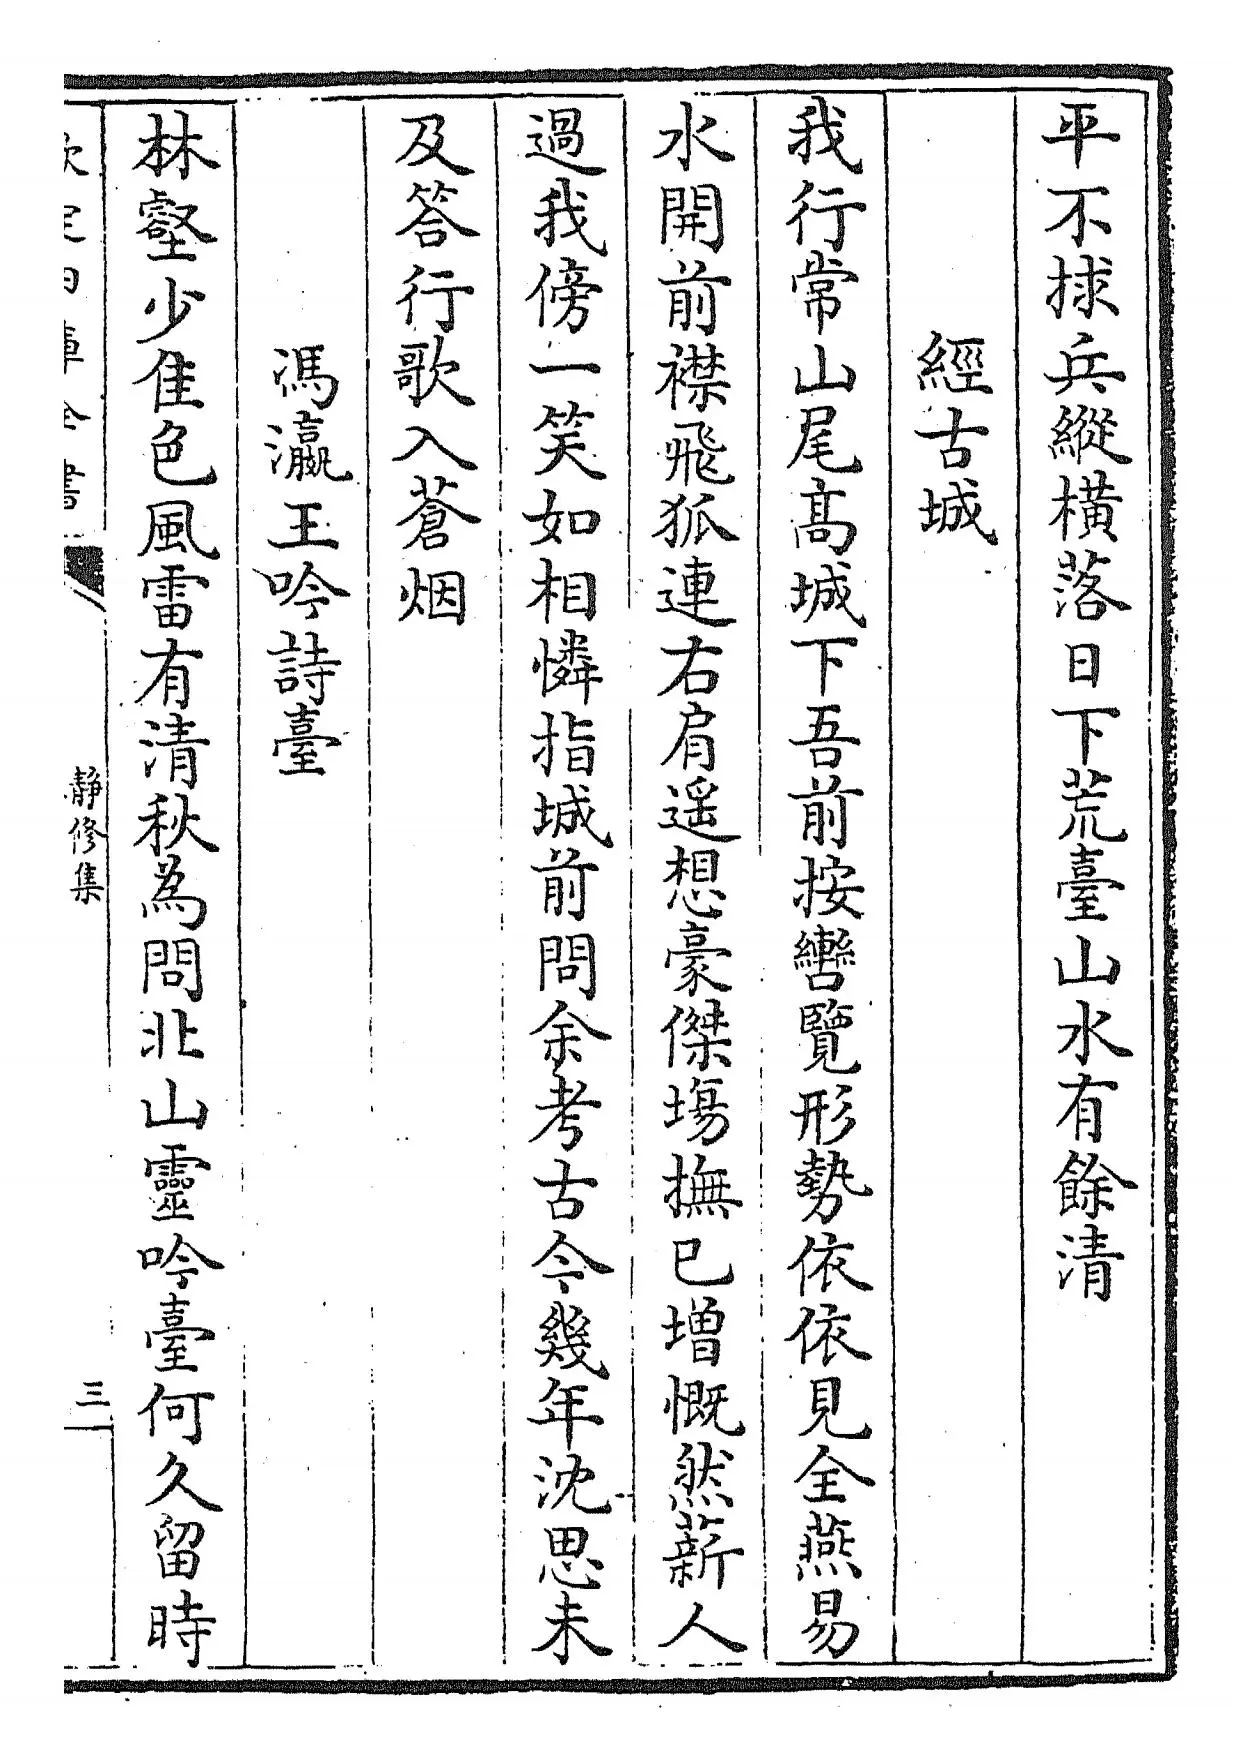 平不捄兵縱橫落日下荒臺山水有餘清
經古城
我行常山尾髙城下吾前按轡覽形勢依依見全燕易
水開前襟飛狐連右肩遥想豪傑塲撫已增慨然薪人
過我傍一笑如相憐指城前問余考古今幾年沈思未
及答行歌入蒼烟
馮瀛王吟詩臺
林壑少佳色風雷有清秋為問北山靈吟臺何久留時
欽定四庫全書
静修集
三